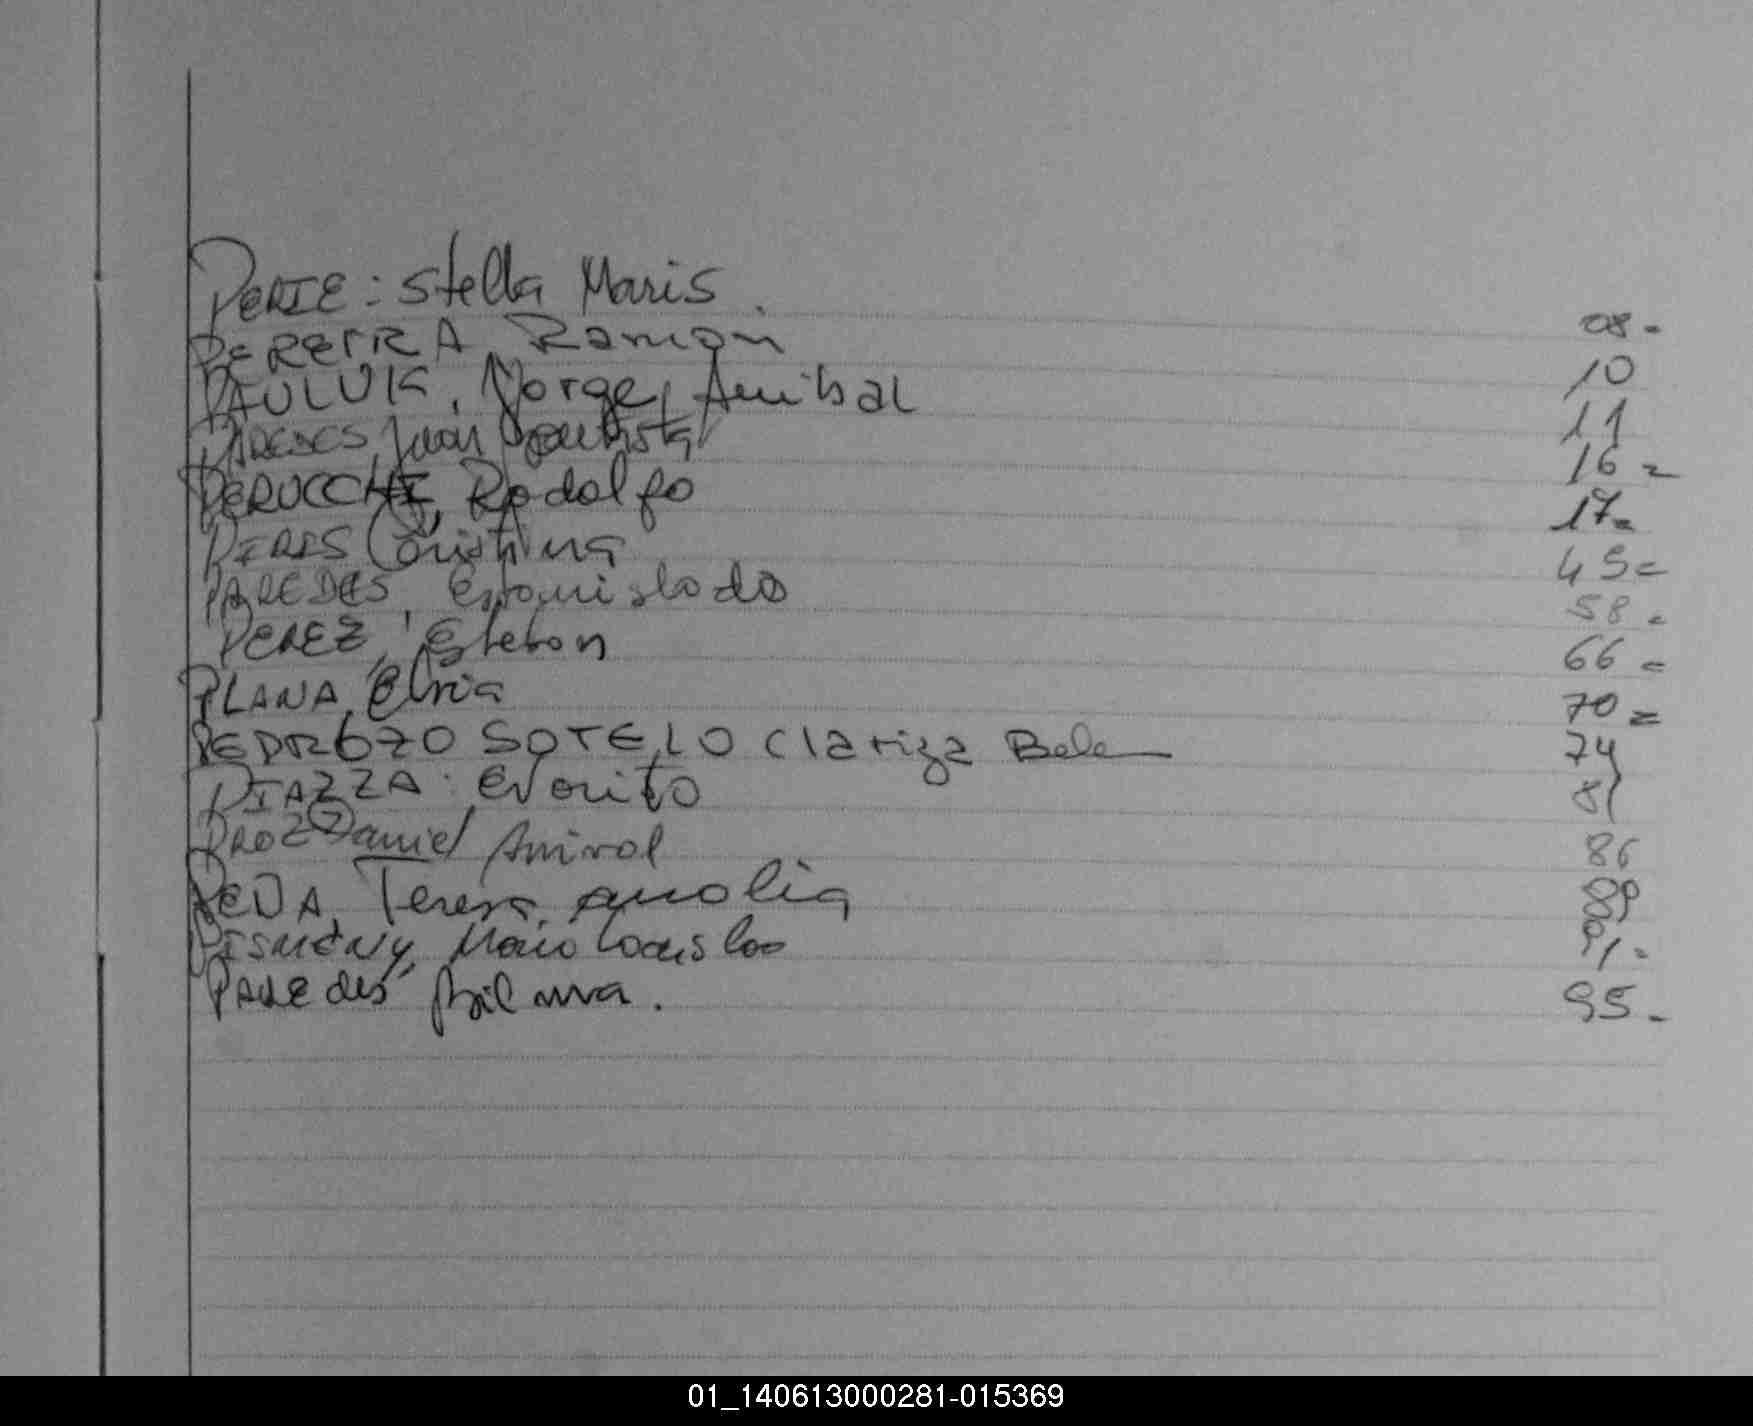 PERIE: Stella Maris. 08-
PEREIRA Ramon 10
PAULUK, Jorge Anibal 11
PAREDES, Juan Bautista 16=
PERUCCHI, Rodolfo 17=
PIRIS Cristina 45=
PAREDES, Estanislada 58=
PEREZ, Esteban 66=
PLANA, Elvia 70=
PEDROZO SOTELO Clariza Bele 74
PIAZZA: Evorito 81
Daniel Anival 86
PEÑA, Teresa, 89
Mario 91-
PAREdes 95-
01_140613000281-015369